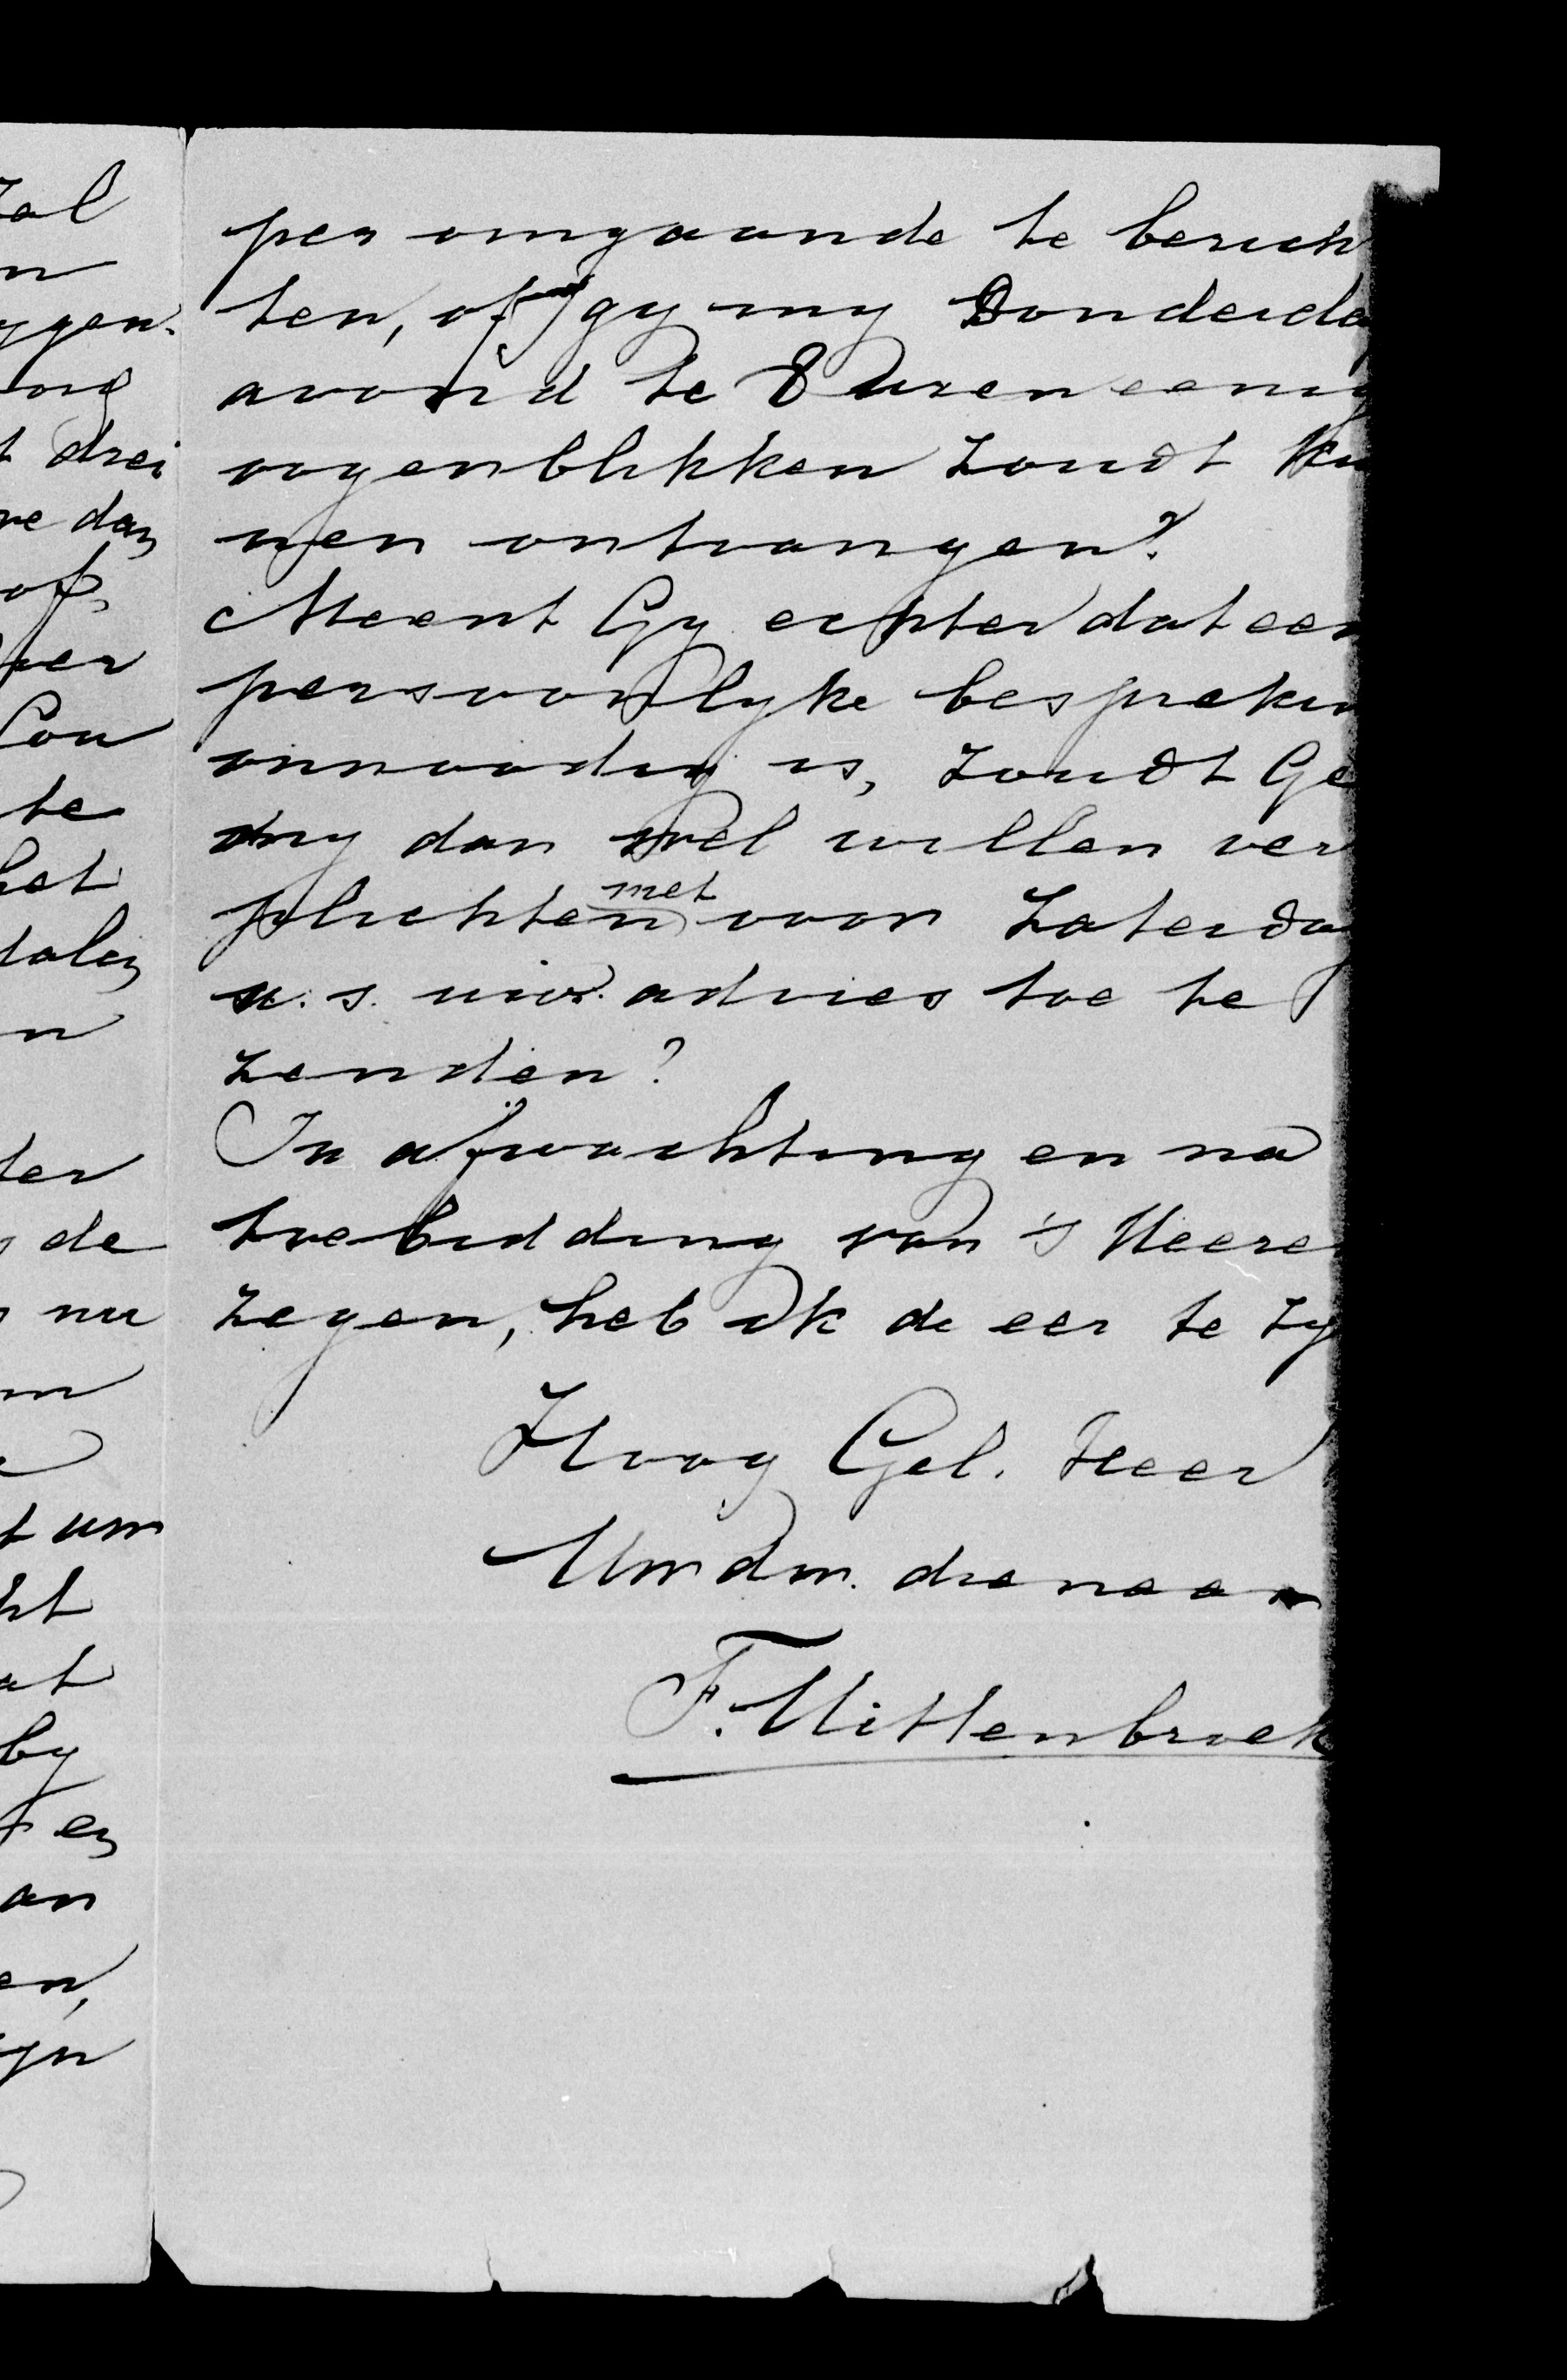 zal
n
ygen.
ong
t drei
re dan
of,
per
Con
te
het
talen
n
ter
de
nu
m
t um
ht
at
by
en
an
en,
ijn
per omgaande te berich
ten, of gy my Donderda
avond te 8 uren eenig
oogenblikken zoudt ku
nen ontvangen?
Meent Gy echter dat een
persoonlyke besprekin
onnoodig is, zoudt Ge
my dan wel willen ver
plichten met voor Zaterda
a.s. uw advies toe te
zenden?
In afwachting en na
toebidding van 's Heere
zegen, heb ik de eer te zy
Hoog Gel. Heer
Uw dw. dienaar
F. Mittenbroek